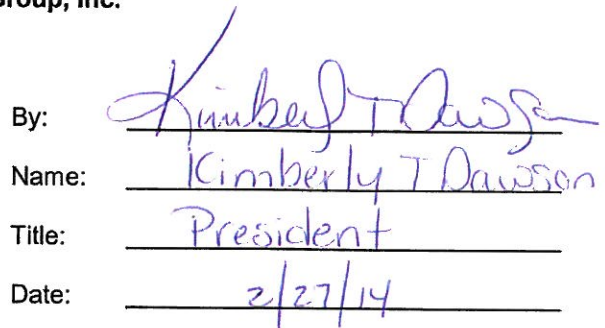 Group, Inc.
By: Kimberly T Dawson
Name: Kimberly T Dawson
Title: President
Date: 2/27/14